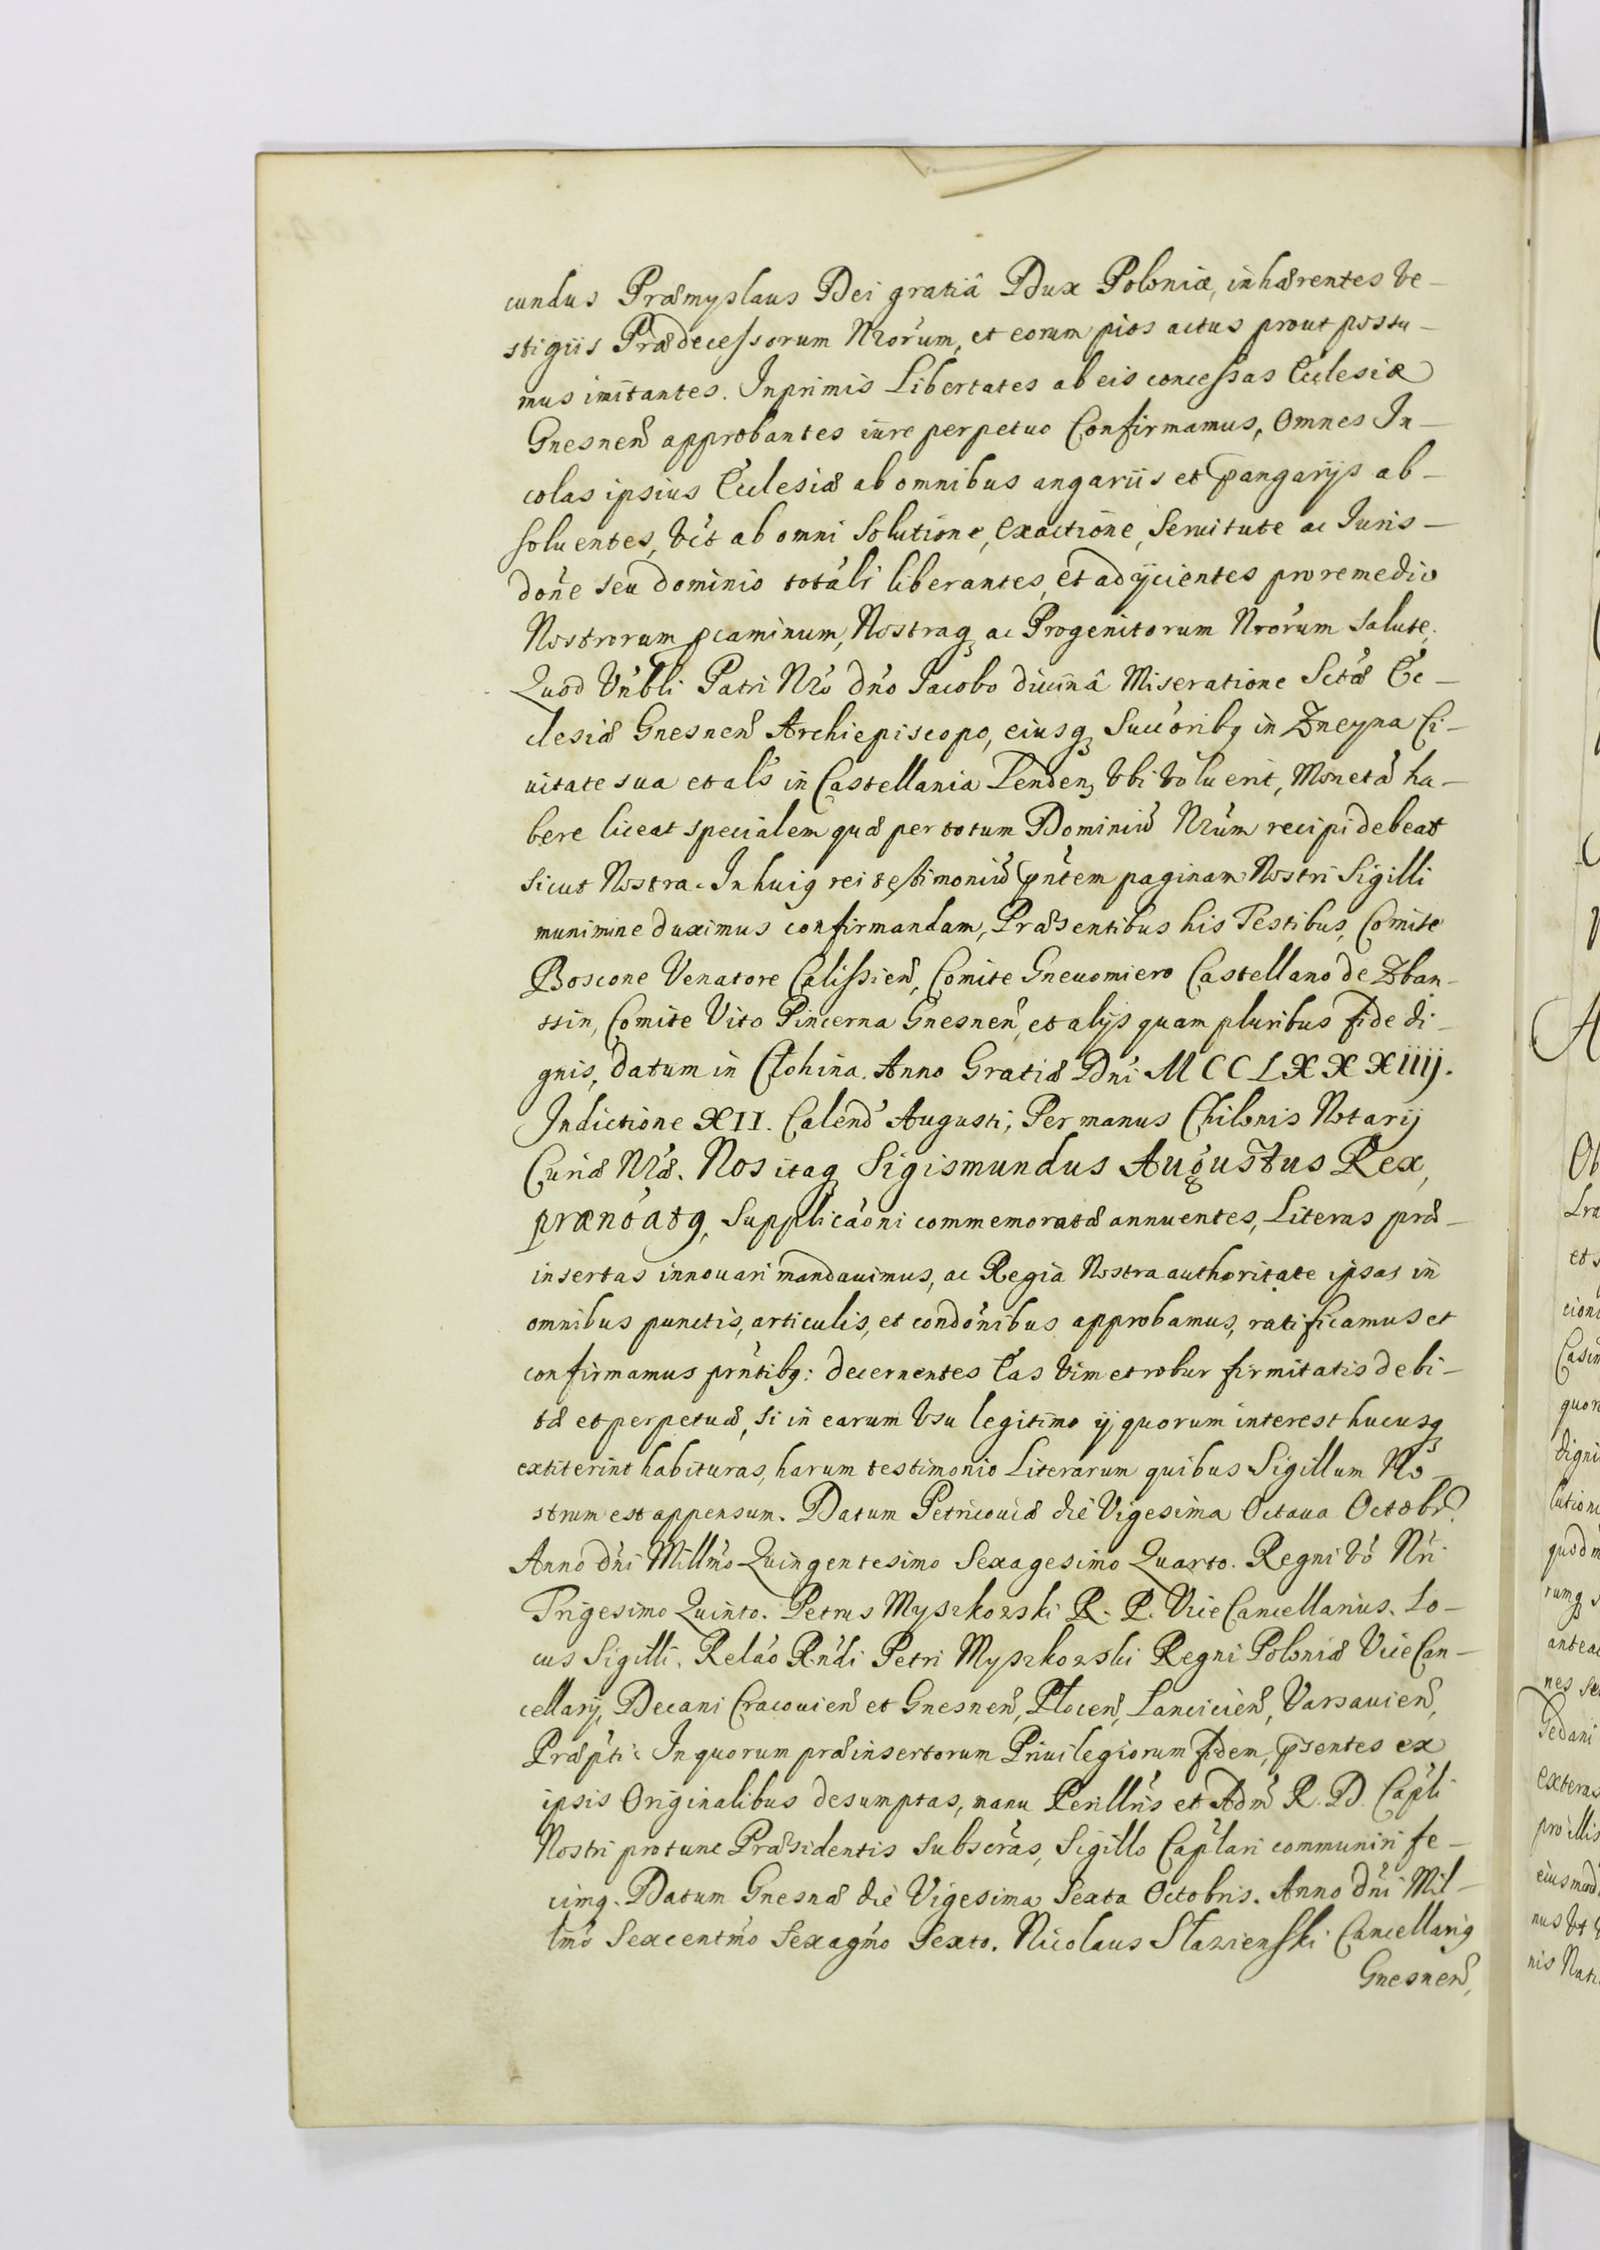 cundus Præmyslaus Dei gratiâ Dux Poloniæ, inhærentes ve-
stigiis Prædecessorum Nrorum, et eorum pios actus prout possu-
mus imitantes. Inprimis Libertates ab eis concessas Ecclesiæ
Gnesnen approbantes iure perpetuo Confirmamus, Omnes In-
colas ipsius Ecclesiæ ab omnibus angariis et pangarijs ab-
soluentes, vct ab omni Solutione, Exactione, Seruitute ac Juris-
done seu dominio totali liberantes, et adijcientes pro remedio
Nostrorum pcaminum, Nostraq ac Progenitorum Nrorum salute,
Quod Vnbli Patri Nro dno Jacobo diuinâ Miseratione Sctæ Ec-
clesiæ Gnesnen Archiepiscopo, eiusq Succoribq in Zneyna Ci-
uitate sua et als in Castellania Lenden, vbi voluerit, Monetã ha-
bere liceat specialem quæ per totum Dominiũ Nrum recipi debeat
sicut Nostra. In huiq rei testimoniũ pntem paginam Nostri Sigilli
munimine duximus confirmandam, Præsentibus his Testibus, Comite
Boscone Venatore Calissien, Comite Gneuomiero Castellano de Zban-
ssin, Comite Vito Pincerna Gnesnen, et alijs quam pluribus fide di-
gnis, datum in Clohina. Anno Gratiæ Dni MCCLXXXiiij.
Indictione XII. Calend Augusti, Per manus Chilonis Notarij
Curiæ Nræ. Nos itaq Sigismundus Augustus Rex,
prænotatq, Supplicaoni commemoratæ annuentes, Literas præ-
insertas innouari mandauimus, ac Regia Nostra authoritate ipsas in
omnibus punctis, articulis, et condonibus approbamus, ratificamus et
confirmamus prntibq: decernentes Eas vim et robur firmitatis debi-
tæ et perpetuæ, si in earum vsu legitimo ij quorum interest hucusq
extiterint habituras, harum testimonio Literarum quibus Sigillum No-
strum est appensum. Datum Petricouiæ die Vigesima Octaua Octobr
Anno dni Millmo Quingentesimo Sexagesimo Quarto. Regni vo Nri
Trigesimo Quinto. Petrus Myszkowski R. P. Vice Cancellarius. Lo-
cus Sigilli. Relao Rndi Petri Myszkowski Regni Poloniæ Vice Can-
cellarij, Decani Cracouien et Gnesnen, Plocen, Lancicien, Varsauien,
Præpti: In quorum præinsertorum Priuilegiorum fidem, psentes ex
ipsis Originalibus desumptas, manu Perillris et Adm R. D. Capli
Nostri protunc Præsidentis subscras, Sigillo Caplari communiri fe-
cimq. Datum Gnesnæ die Vigesima Sexta Octobris. Anno dni Mil-
lmo Sexcentmo Sexagmo Sexto. Nicolaus Stawienski Cancellariq
Gnesnen,